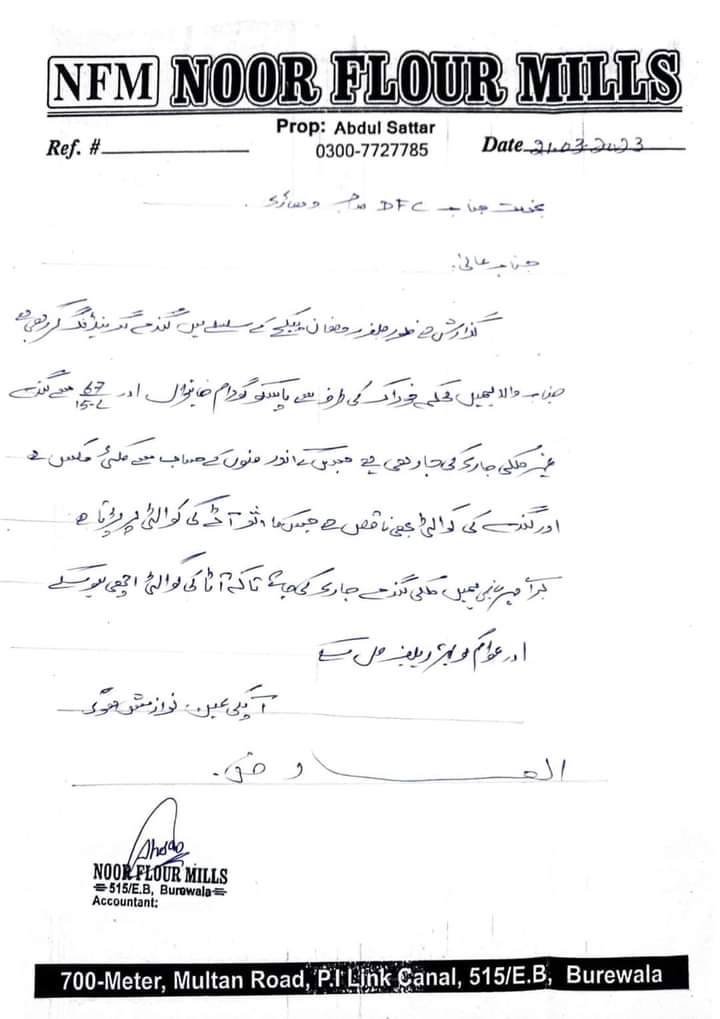 NFM NOOR FLOUR MILLS
Prop: Abdul Sattar
0300-7727785
Ref. #
Date 21.03.2023
بخدمت جناب DFC صاحب وہاڑی.
جناب عالیٰ.
گذارش ہے فلور ملز رمضان پیکج کے سلسلے میں گندم گرینڈنگ کر رہی ہے
جناب والا ہمیں محکمہ خوراک کی طرف سے پاسکو گودام خانیوال اور 67/15-L سے گندم
غیر ملکی جاری کی جا رہی ہے جس کے اندر منوں کے حساب سے مٹی مکس ہے
اور گندم کی کوالٹی بھی ناقص ہے جس کا اثر آٹے کی کوالٹی پر پڑتا ہے
برائے مہربانی ہمیں ملکی گندم جاری کی جائے تاکہ آٹا کی کوالٹی اچھی ہو سکے
اور عوام کو بہتر ریلیف مل سکے
آپکی عین نوازش ہوگی
العارض.
NOOR FLOUR MILLS
515/E.B, Burewala
Accountant:
700-Meter, Multan Road, P.I Link Canal, 515/E.B, Burewala